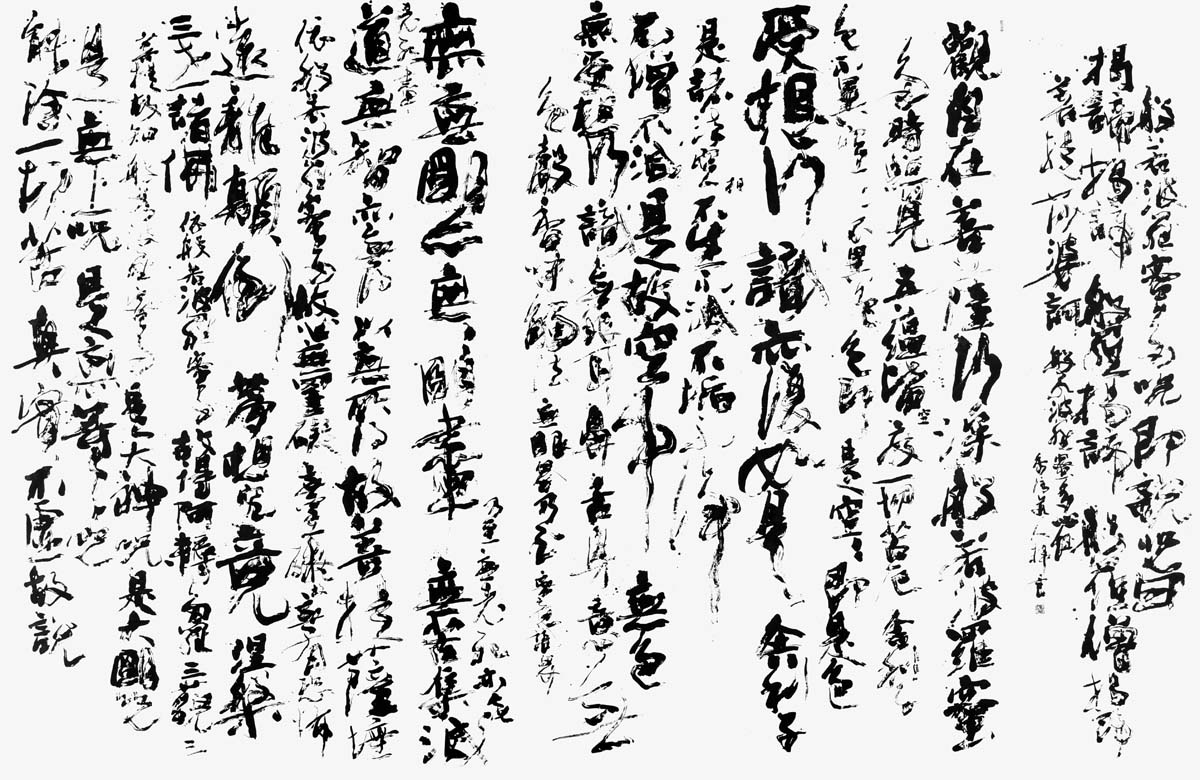 般若波羅蜜多咒即說咒曰
揭諦揭諦般羅揭諦般羅僧揭諦
菩提莎婆訶般若波羅蜜多心經
觀自在菩薩行深般若波羅蜜
多時照見五蘊皆空度一切苦厄舍利子
色不異空空不異色色即是空空即是色
受想行識亦復如是舍利子
是諸法空相不生不滅不垢不淨
不增不減是故空中無色
無受想行識無眼耳鼻舌身意無
色聲香味觸法無眼界乃至無意識界
無無明亦無無明盡
乃至無老死亦無
老死盡
無苦集滅
道無智亦無得以無所得故菩提薩埵
依般若波羅蜜多故心無罣礙無罣礙故無有恐怖
遠離顛倒夢想究竟涅槃
三世諸佛依般若波羅蜜多故得阿耨多羅三藐三
菩提故知般若波羅蜜多是大神咒是大明咒
是無上咒是無等等咒
能除一切苦真實不虛故說